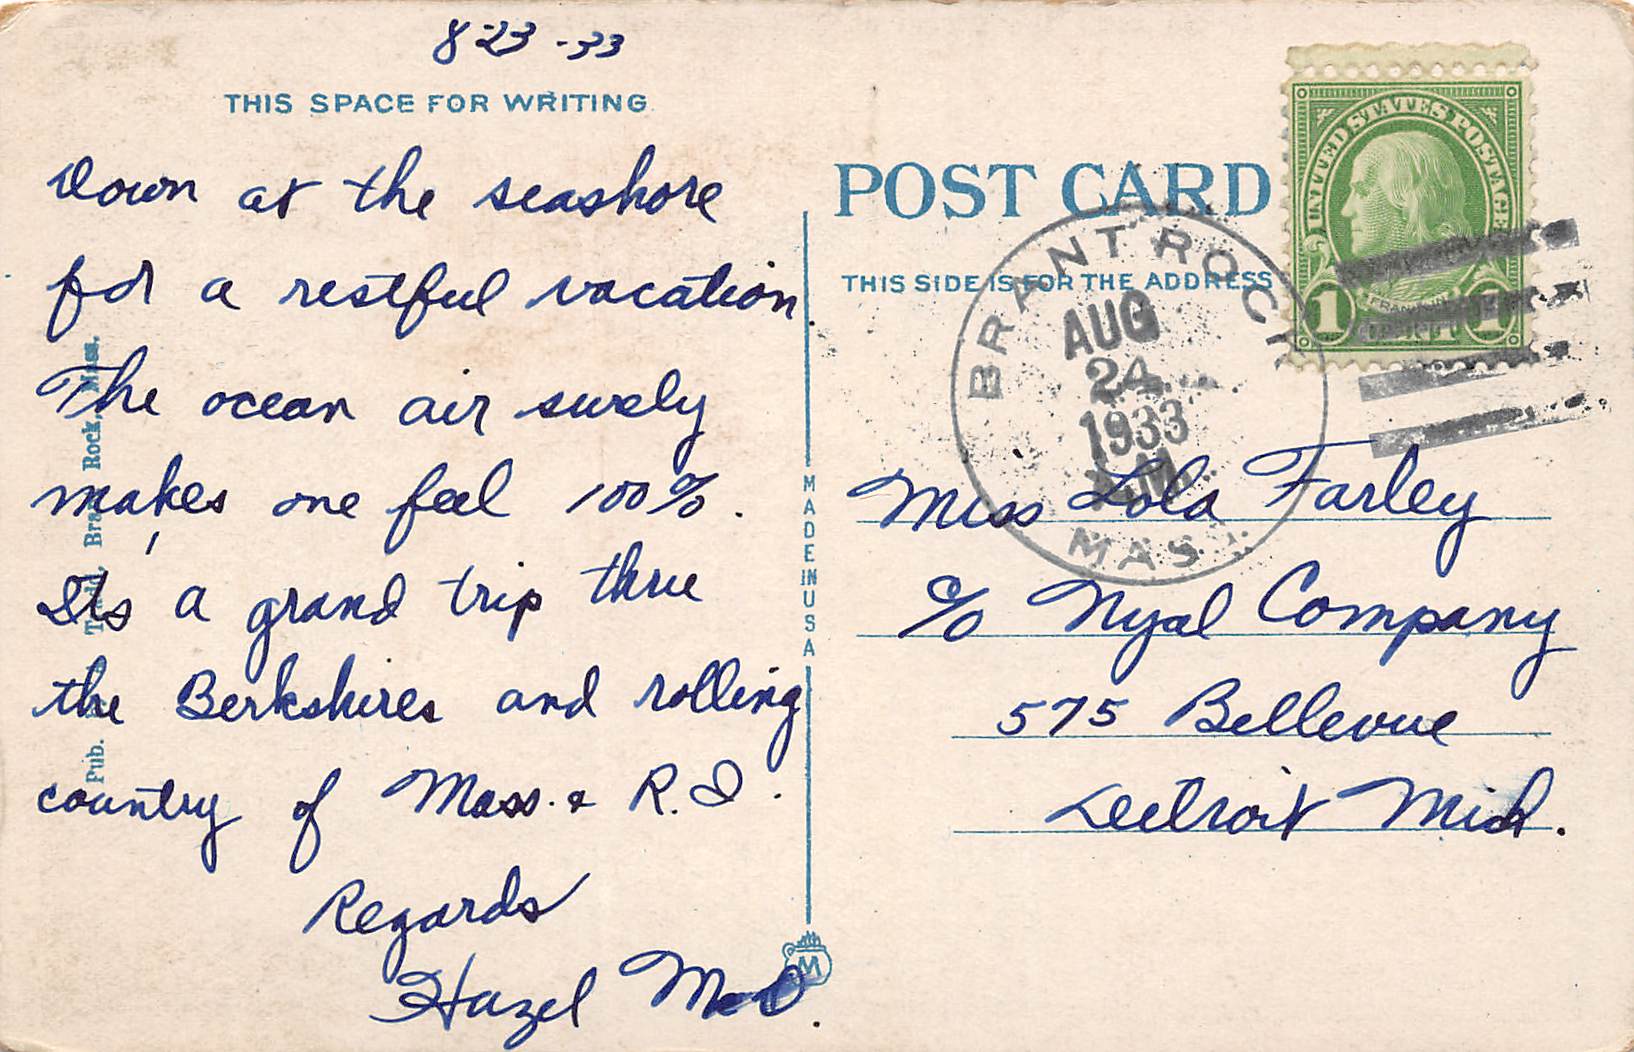 8-23-33
THIS SPACE FOR WRITING
Down at the seashore
for a restful vacation
The ocean air surely
makes one feel 100%.
It's a grand trip thru
the Berkshires and rolling
country of Mass. & R.I.
Regards
Hazel
Pub. Todd, Brant Rock, Mass.
MADE IN USA
M
POST CARD
THIS SIDE IS FOR THE ADDRESS
UNITED STATES POSTAGE
1 FRANKLIN 1
CENT
BRANT ROCK
AUG
24
1933
MASS.
Miss Lola Farley
c/o Nyal Company
575 Bellevue
Detroit Mich.